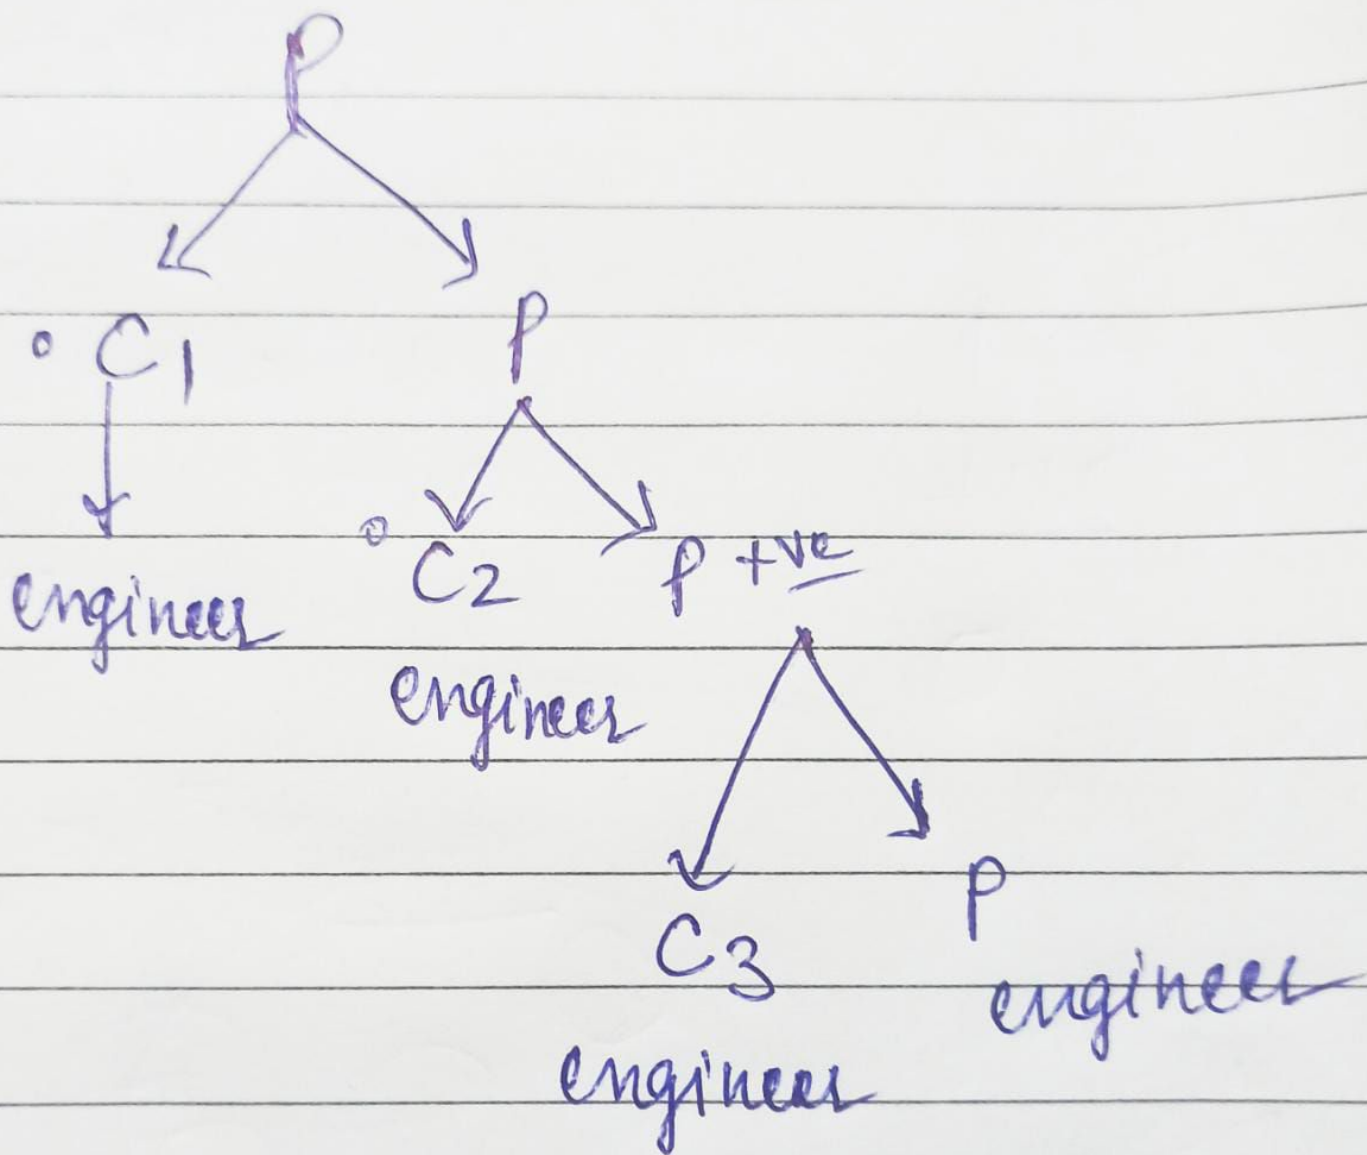 P
C1
P
engineer
C2
P +ve
engineer
C3
P
engineer
engineer